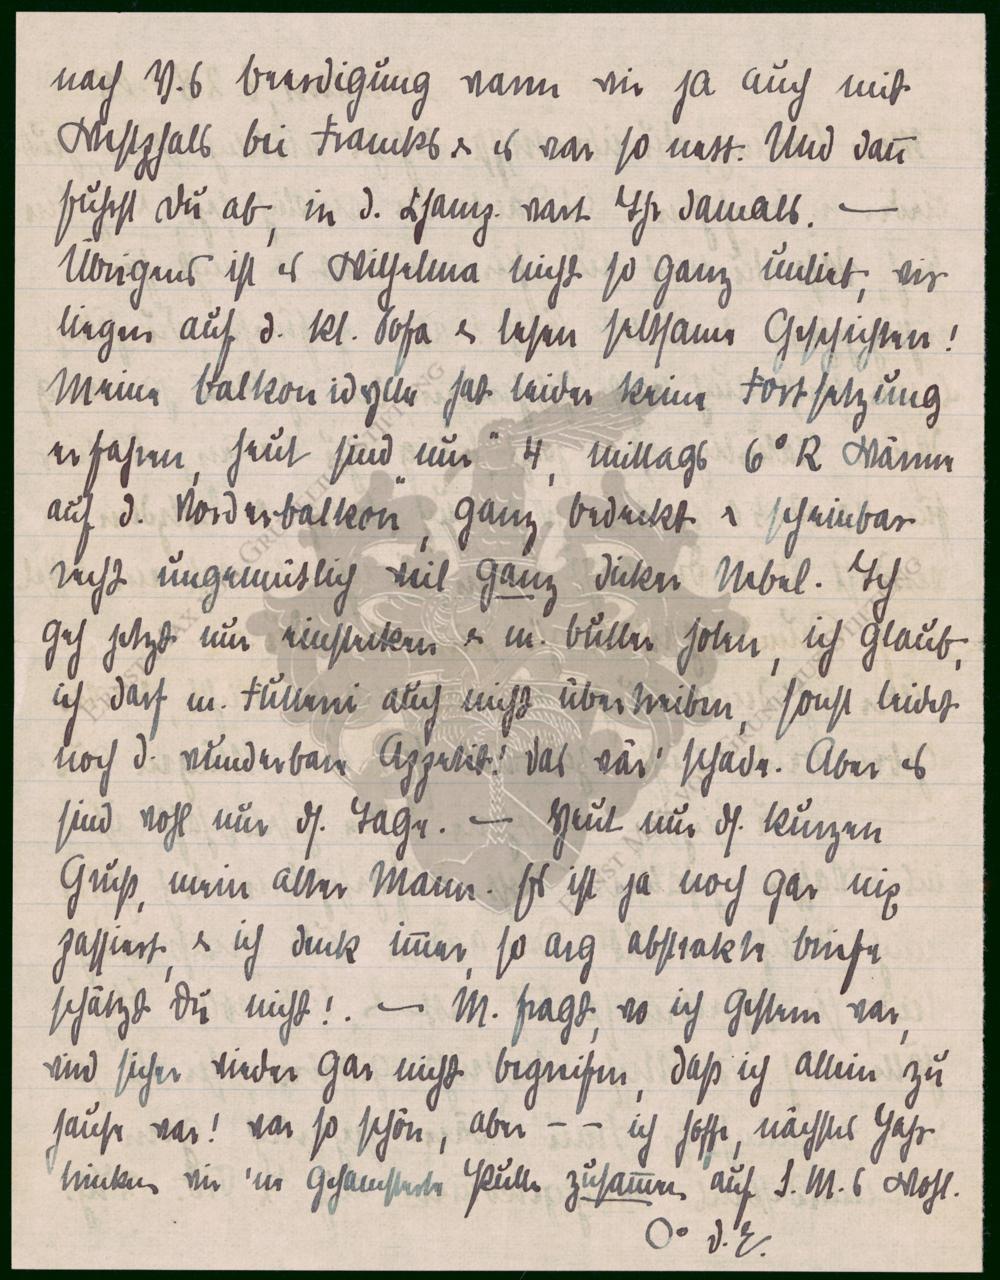 nach V.s beerdigung waren wir ja auch mit
Westphals bei Francks & es war so nett. Und dañ
fuhrst du ab, in d. Champ. wart Ihr damals. —
Übrigens ist es Wilhelma nicht so ganz unlieb, wir
liegen auf d. kl. Sofa & lesen seltsame Geschichten!
Meine balkonidylle hat leider keine Fortsetzung
erfahren, heut sind nur 4, mittags 6° R Wärme
auf d. "Vorderbalkon", ganz bedeckt & scheinbar
recht ungemütlich weil ganz dicker Nebel. Ich
geh jetzt nur einstecken & m. butter holen, ich glaub,
ich darf m. Fütterei auch nicht übertreiben, sonst leidet
noch d. wunderbare Appetit! das wär' schade. Aber es
sind wohl nur ds. Tage. — Heut nur ds. kurzen
Gruß, mein alter Mann. Es ist ja noch gar nix
passiert, & ich denk im̄er, so arg abstrakte briefe
schätzt du nicht!. — M. fragt, wo ich gestern war,
wird sicher wieder gar nicht begreifen, daß ich allein zu
hause war! war so schön, aber – – ich hoffe, nächstes Jahr
trinken wir 'ne Pulle zusam̄en auf S.M.s Wohl.
d. E.